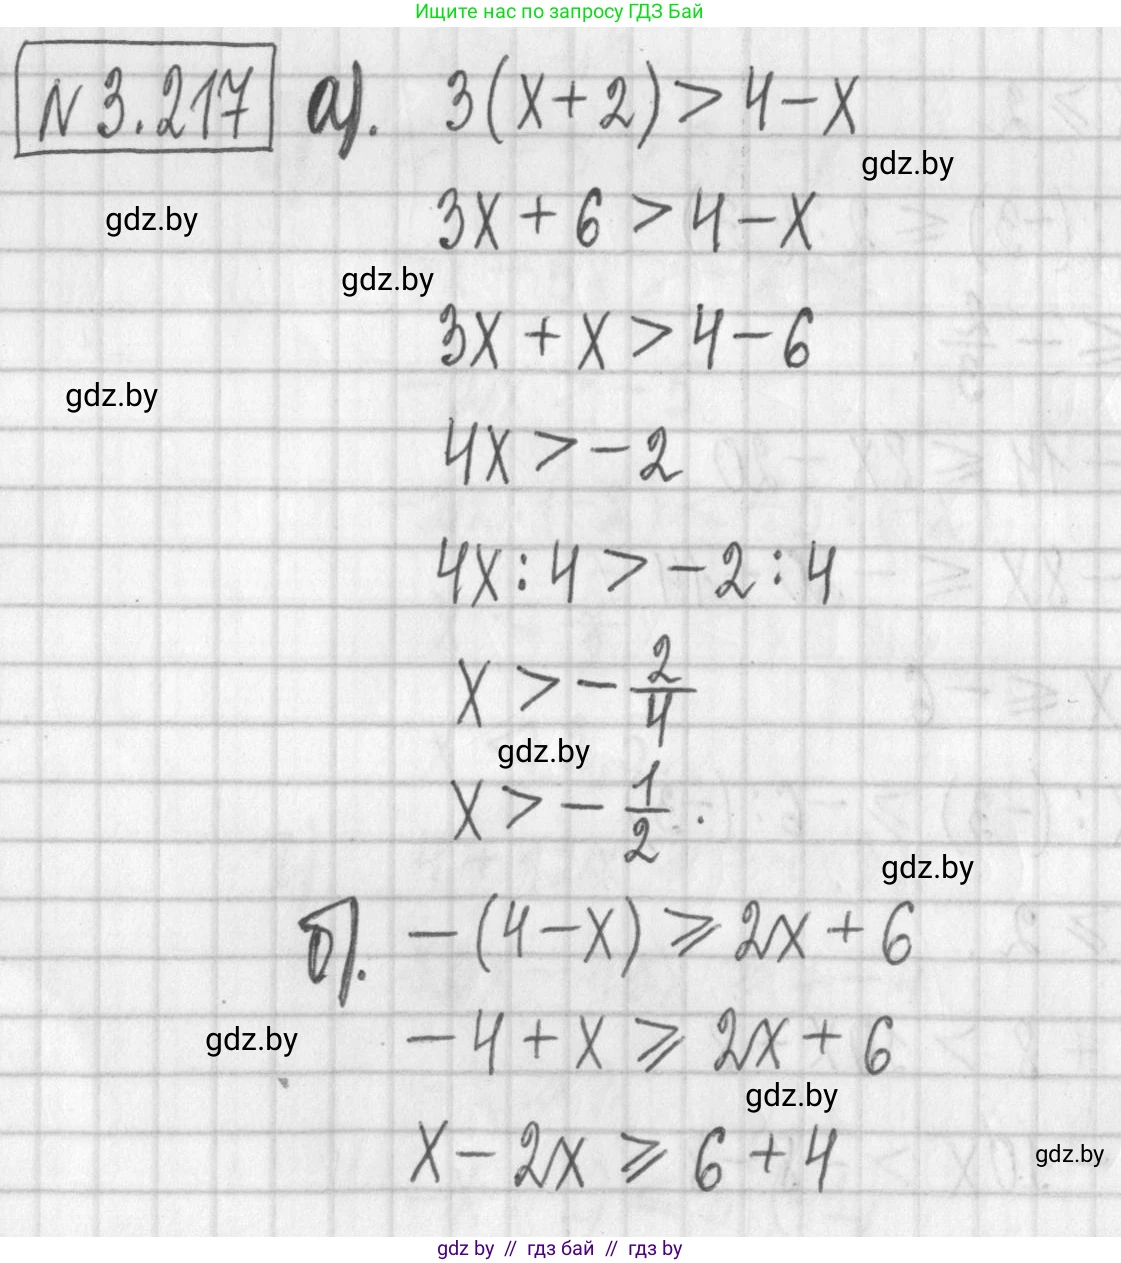 Ищите нас по запросу ГДЗ Бай
N 3.217 а). 3(x+2) > 4-x
gdz.by
3x + 6 > 4 - x
gdz.by
gdz.by
3x + x > 4 - 6
gdz.by
4x > -2
4x : 4 > -2 : 4
x > - 2/4
gdz.by
x > - 1/2 .
gdz.by
б). -(4-x) ⩾ 2x + 6
-4 + x ⩾ 2x + 6
gdz.by
gdz.by
x - 2x ⩾ 6 + 4
gdz.by
gdz by // гдз бай // гдз by